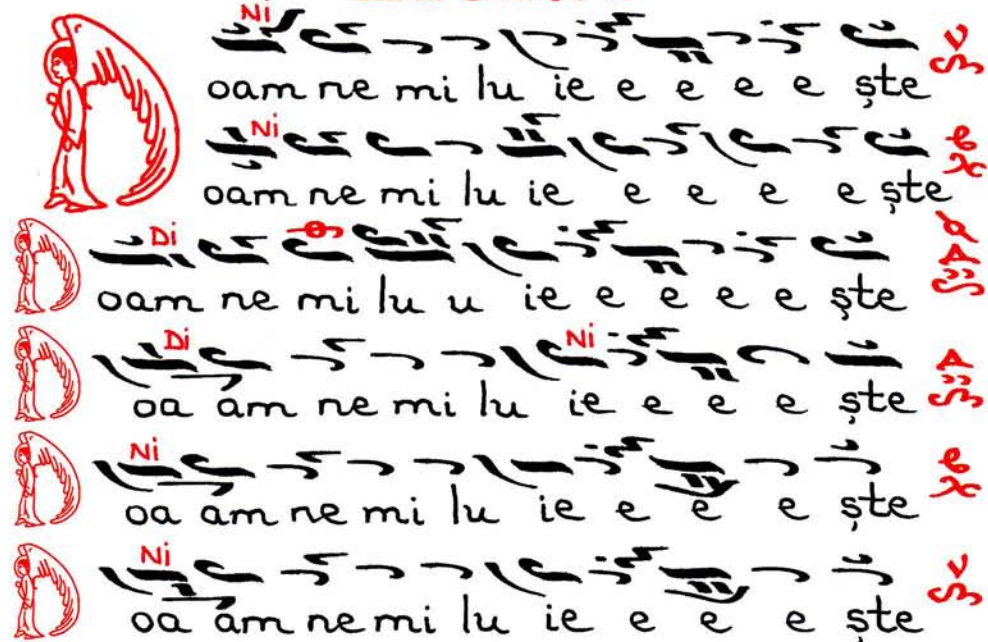 Ni
Doam ne mi lu ie e e e e ște
Ni
oam ne mi lu ie e e e e ște
Di
Doam ne mi lu u ie e e e e ște
Di Ni
Doa am ne mi lu ie e e e ște
Ni
Doa am ne mi lu ie e e e ște
Ni
Doa am ne mi lu ie e e e ște